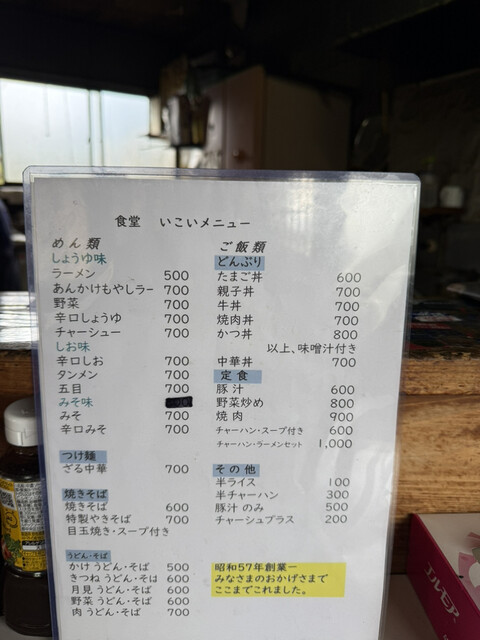 食堂 いこいメニュー
めん類
しょうゆ味
ラーメン 500
あんかけもやしラー 700
野菜 700
辛口しょうゆ 700
チャーシュー 700
しお味
辛口しお 700
タンメン 700
五目 700
みそ味
みそ 700
辛口みそ 700
つけ麺
ざる中華 700
焼きそば
焼きそば 600
特製やきそば 700
目玉焼き・スープ付き
うどん・そば
かけ うどん・そば 500
きつね うどん・そば 600
月見 うどん・そば 600
野菜 うどん・そば 600
肉 うどん・そば 700
ご飯類
どんぶり
たまご丼 600
親子丼 700
牛丼 700
焼肉丼 700
かつ丼 800
以上、味噌汁付き
中華丼 700
定食
豚汁 600
野菜炒め 800
焼肉 900
チャーハン・スープ付き 600
チャーハン・ラーメンセット 1,000
その他
半ライス 100
半チャーハン 300
豚汁 のみ 500
チャーシュプラス 200
昭和57年創業ー
みなさまのおかげさまで
ここまでこれました。
エルモア